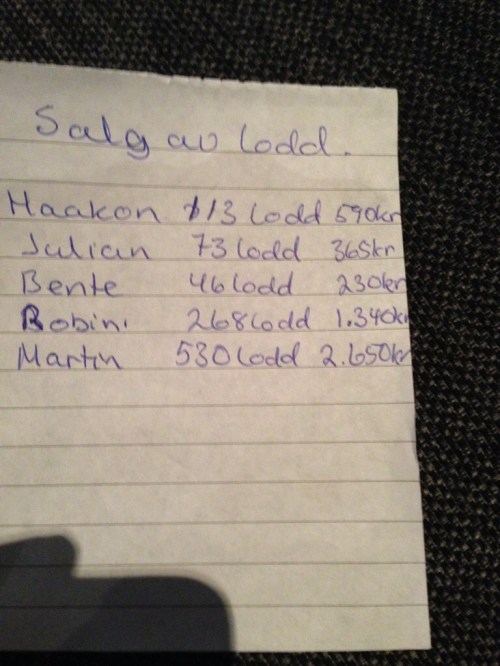 Salg av lodd.
Haakon 113 lodd 590kr
Julian 73 lodd 365kr
Bente 46 lodd 230kr
Robin 268 lodd 1.340kr
Martin 530 lodd 2.650kr